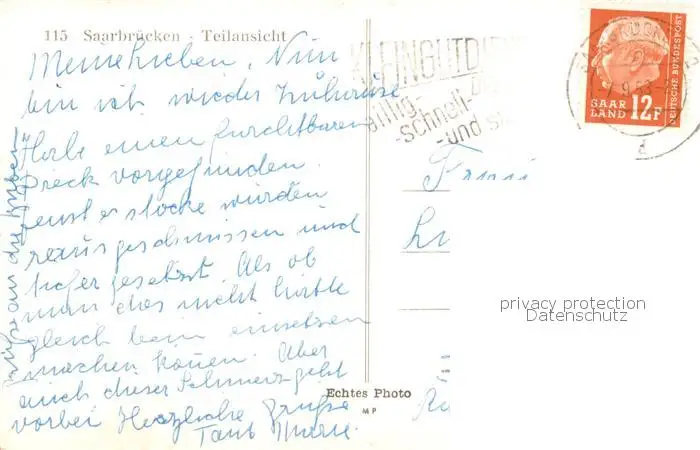 115 Saarbrücken - Teilansicht
Meine Lieben, Nun
bin ich wieder Zuhause
Habe einen furchtbaren
Dreck vorgefunden.
wurden
rausgeschmissen und
tiefer gesetzt. Als ob
man das nicht hätte
gleich beim einsetzen
machen können. Aber
auch dieser Schmerz geht
vorbei Herzliche Grüße
Tante
Grüße an die
KLEINGUTDIENST
billig-
-schnell-
-und
SAAR
LAND 12F
DEUTSCHE BUNDESPOST
privacy protection
Datenschutz
Echtes Photo
MP